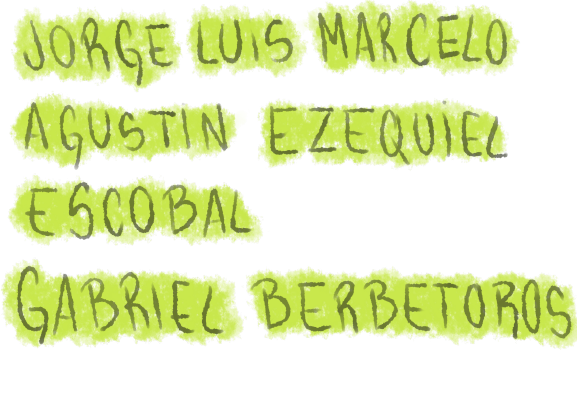 JORGE LUIS MARCELO
AGUSTIN EZEQUIEL
ESCOBAL
GABRIEL BERBETOROS